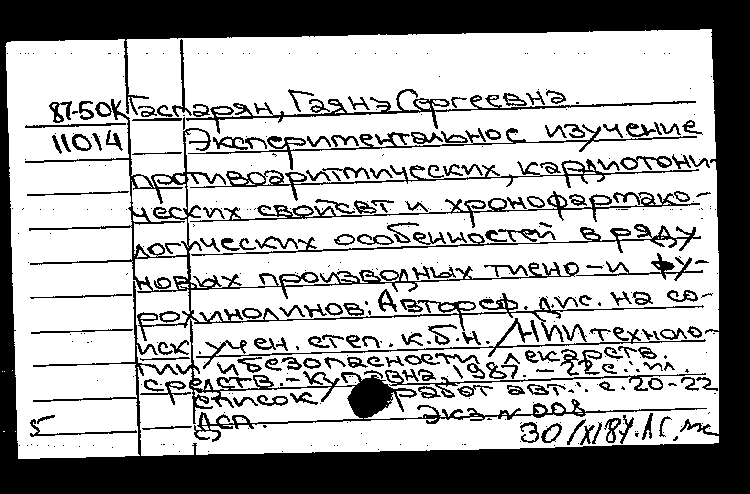 87-50К Гаспарян, Гаянэ Сергеевна.
11014 Экспериментальное изучение
противоаритмических, кардиотони-
ческих свойсвт и хронофармако-
логических особенностей в ряду
новых производных тиено- и фу-
рохинолинов: Автореф. дис. на со-
иск. учен. степ. к.б.н. / НИИ техноло-
гии и безопасности лекарств.
средств. - Купавна, 1987. - 22 с.: ил.
Список работ авт.: с. 20-22
Дсп. Экз. N 008
5